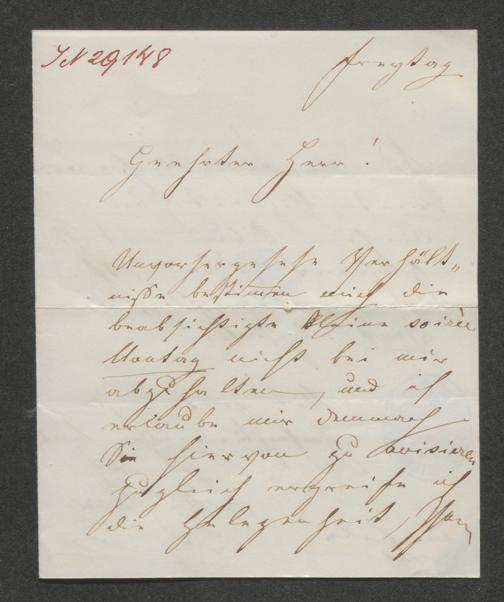 IN 29148
Freytag
Geehrter Herr!
Unvorhergesehe Verhält„
nisse bestimmen mich die
beabsichtigte kleine soirée
Montag nicht bei mir
abzuhalten, und ich
erlaube mir demnach
Sie hiervon zu avisieren
zugleich ergreife ich
die Gelegenheit, Ihnen